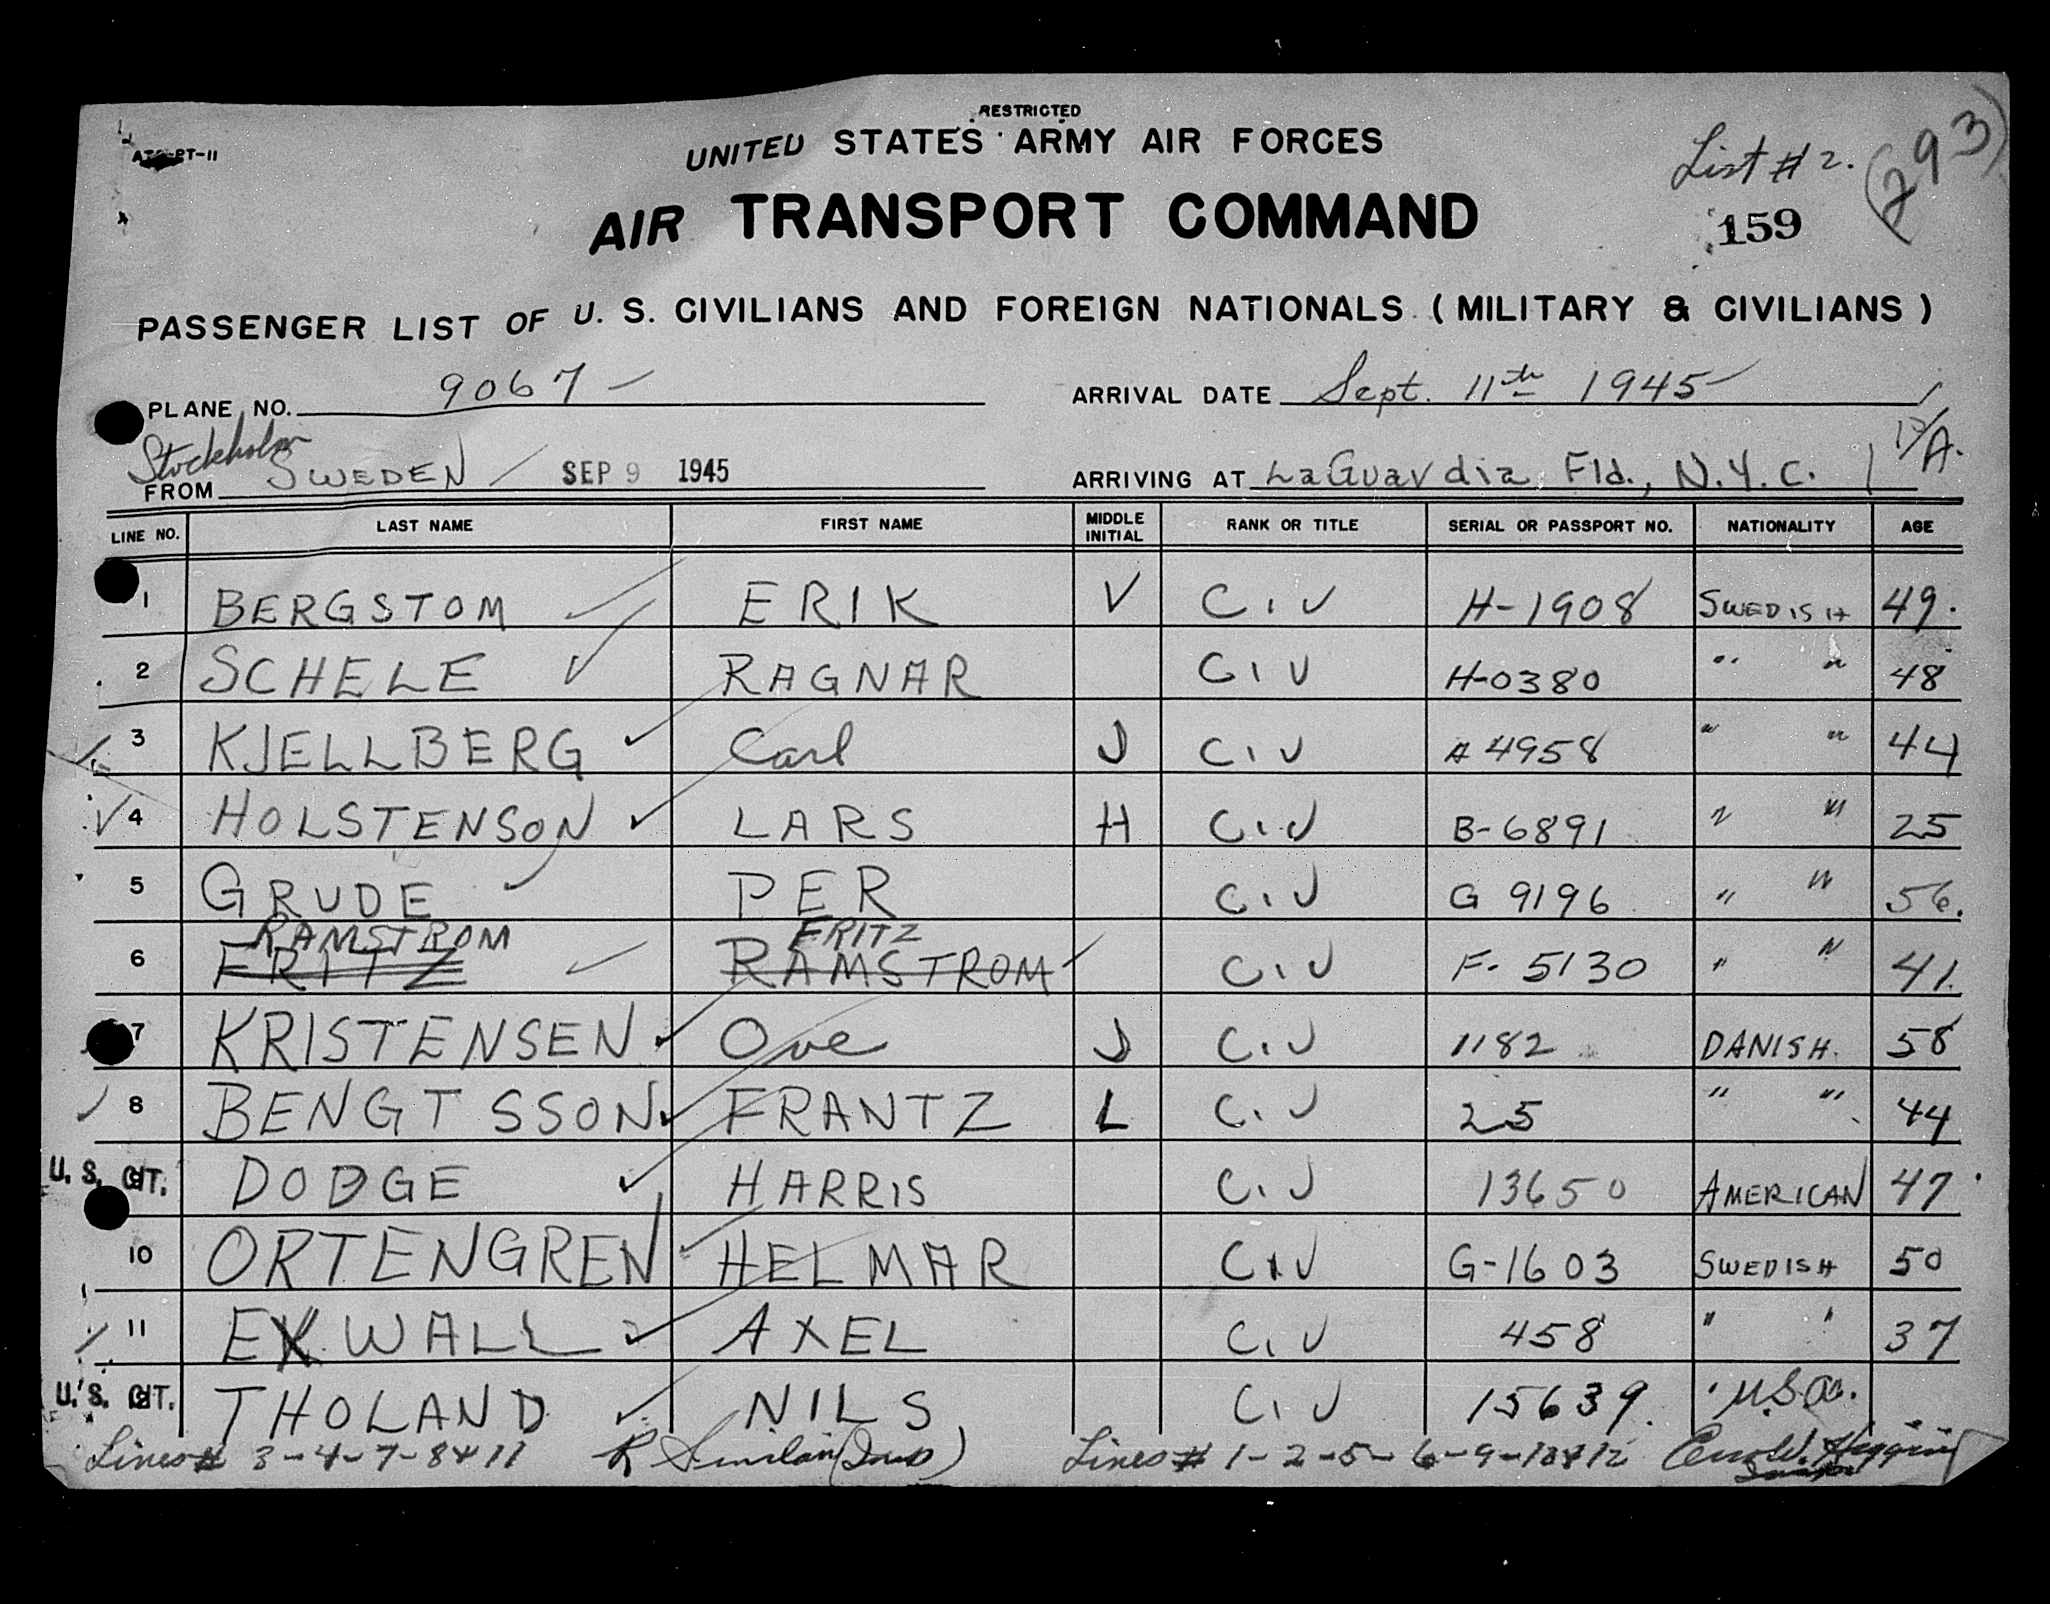 RESTRICTED
UNITED STATES ARMY AIR FORCES
List # 2. (293)
AIR TRANSPORT COMMAND
159
PASSENGER LIST OF U. S. CIVILIANS AND FOREIGN NATIONALS (MILITARY & CIVILIANS)
PLANE NO. 9067 ARRIVAL DATE Sept. 11th 1945
FROM Stockholm SWEDEN SEP 9 1945 ARRIVING AT LaGuardia Fld., N.Y.C.
LINE NO. LAST NAME FIRST NAME MIDDLE INITIAL RANK OR TITLE SERIAL OR PASSPORT NO. NATIONALITY AGE
1 BERGSTOM ERIK V CIV H-1908 SWEDISH 49.
2 SCHELE RAGNAR CIV H-0380 " " 48
3 KJELLBERG Carl J CIV A 4958 " " 44
4 HOLSTENSON LARS H CIV B-6891 " " 25
5 GRUDE PER CIV G 9196 " " 56.
RAMSTROM FRITZ
6 FRITZ RAMSTROM CIV F- 5130 " " 41.
7 KRISTENSEN Ove J CIV 1182 DANISH. 58
8 BENGTSSON FRANTZ L CIV 25 " " 44
U. S. CIT. DODGE HARRIS CIV 13650 AMERICAN 47
10 ORTENGREN HELMAR CIV G-1603 SWEDISH 50
11 EKWALL AXEL CIV 458 " " 37
U. S. CIT. THOLAND NILS CIV 15639. U.S.A.
Lines # 3-4-7-8+11 R Lines # 1-2-5-6-9-10+12